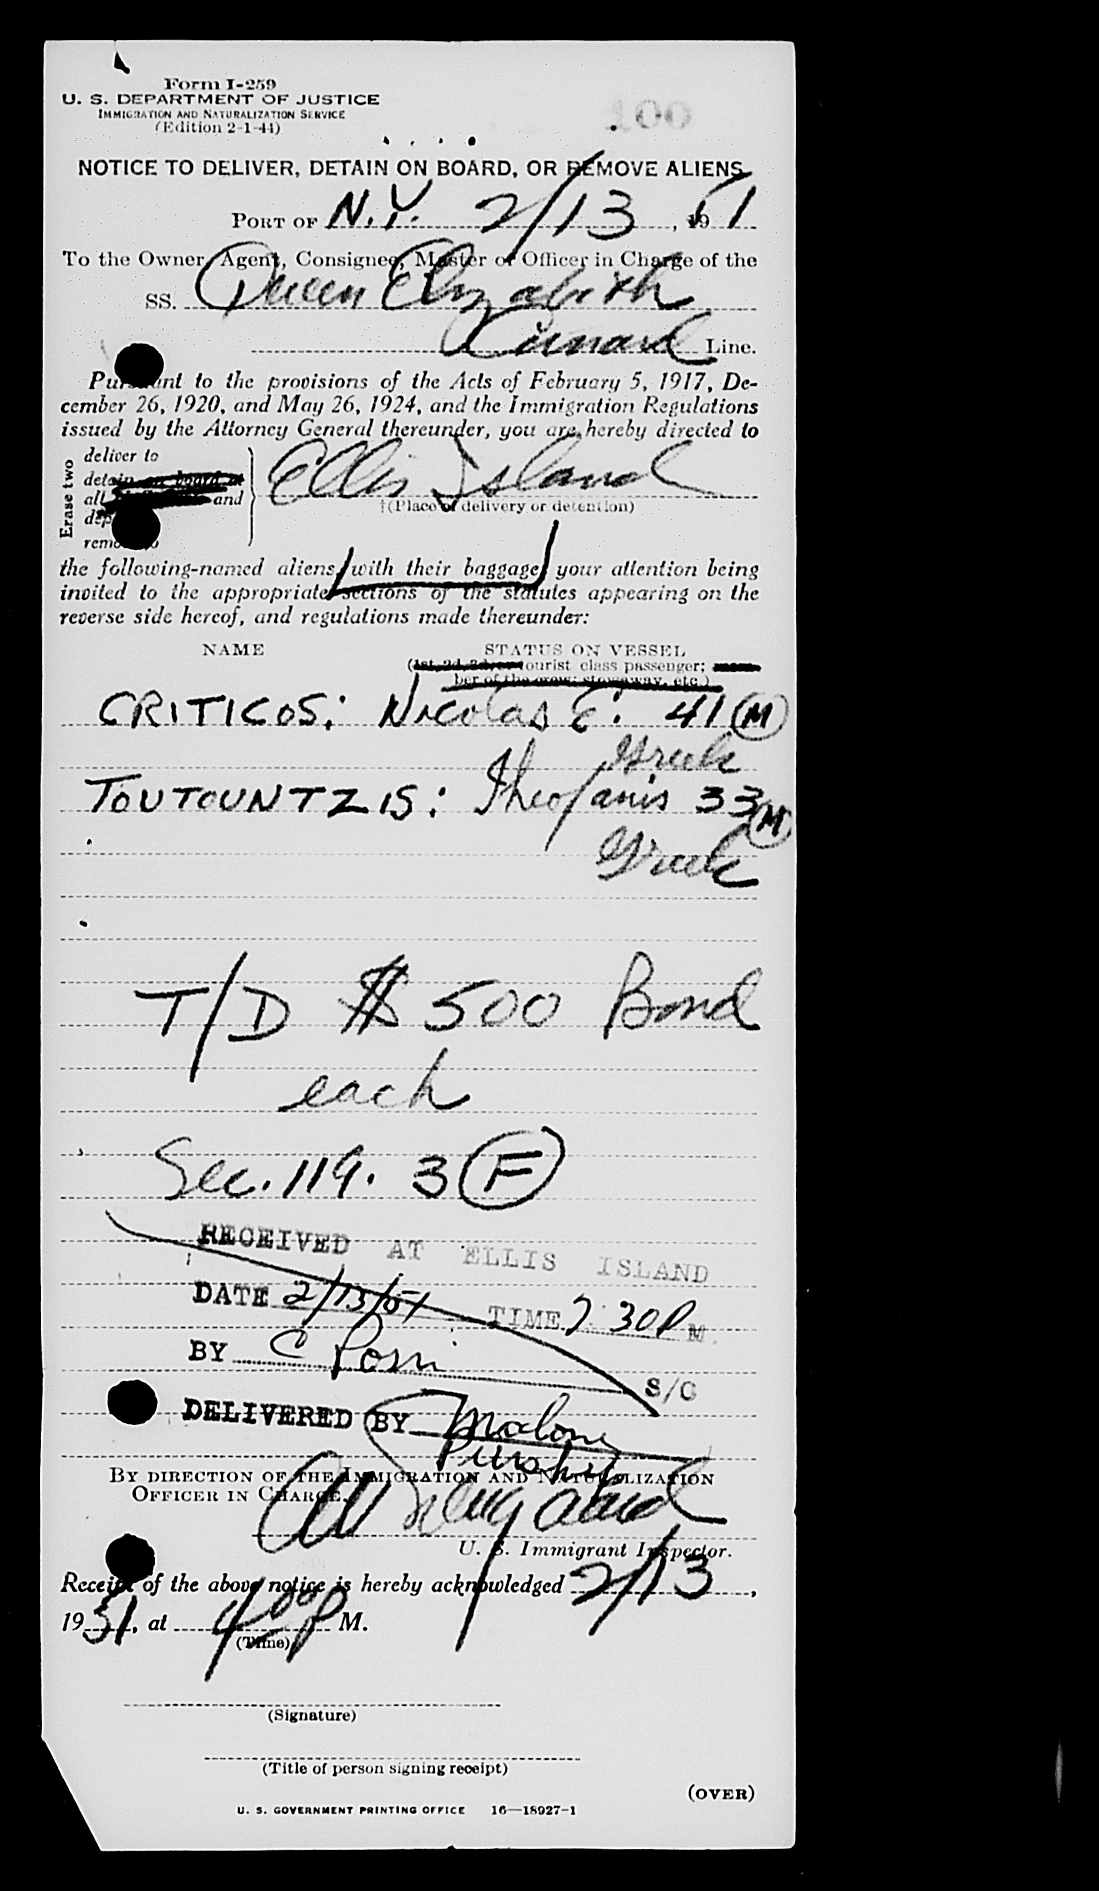 Form I-259
U. S. DEPARTMENT OF JUSTICE
IMMIGRATION AND NATURALIZATION SERVICE
(Edition 2-1-44)
100
NOTICE TO DELIVER, DETAIN ON BOARD, OR REMOVE ALIENS
PORT OF N.Y. 2/13, 1951
To the Owner, Agent, Consignee, Master or Officer in Charge of the
SS. Queen Elizabeth
Cunard Line.
Pursuant to the provisions of the Acts of February 5, 1917, De-
cember 26, 1920, and May 26, 1924, and the Immigration Regulations
issued by the Attorney General thereunder, you are hereby directed to
Erase two
deliver to
detain on board at
all and
remove to
Ellis Island
†(Place of delivery or detention)
the following-named aliens, with their baggage, your attention being
invited to the appropriate sections of the statutes appearing on the
reverse side hereof, and regulations made thereunder:
NAME STATUS ON VESSEL
(1st, 2d, 3d, or tourist class passenger; mem-
ber of the crew; stowaway, etc.)
CRITICOS: Nicolas E. 41 M
Greek
TOUTOUNTZIS: Theofanis 33 M
Greek
T/D $500 Bond
each
Sec. 119. 3 F
RECEIVED AT ELLIS ISLAND
DATE 2/13/51 TIME 7 30 P M.
BY C S/O
DELIVERED BY Malone
BY DIRECTION OF THE IMMIGRATION AND NATURALIZATION
OFFICER IN CHARGE.
U. S. Immigrant Inspector.
Receipt of the above notice is hereby acknowledged 2/13,
1951, at 4 00 P M.
(Time)
(Signature)
(Title of person signing receipt)
(OVER)
U. S. GOVERNMENT PRINTING OFFICE 16—18927-1